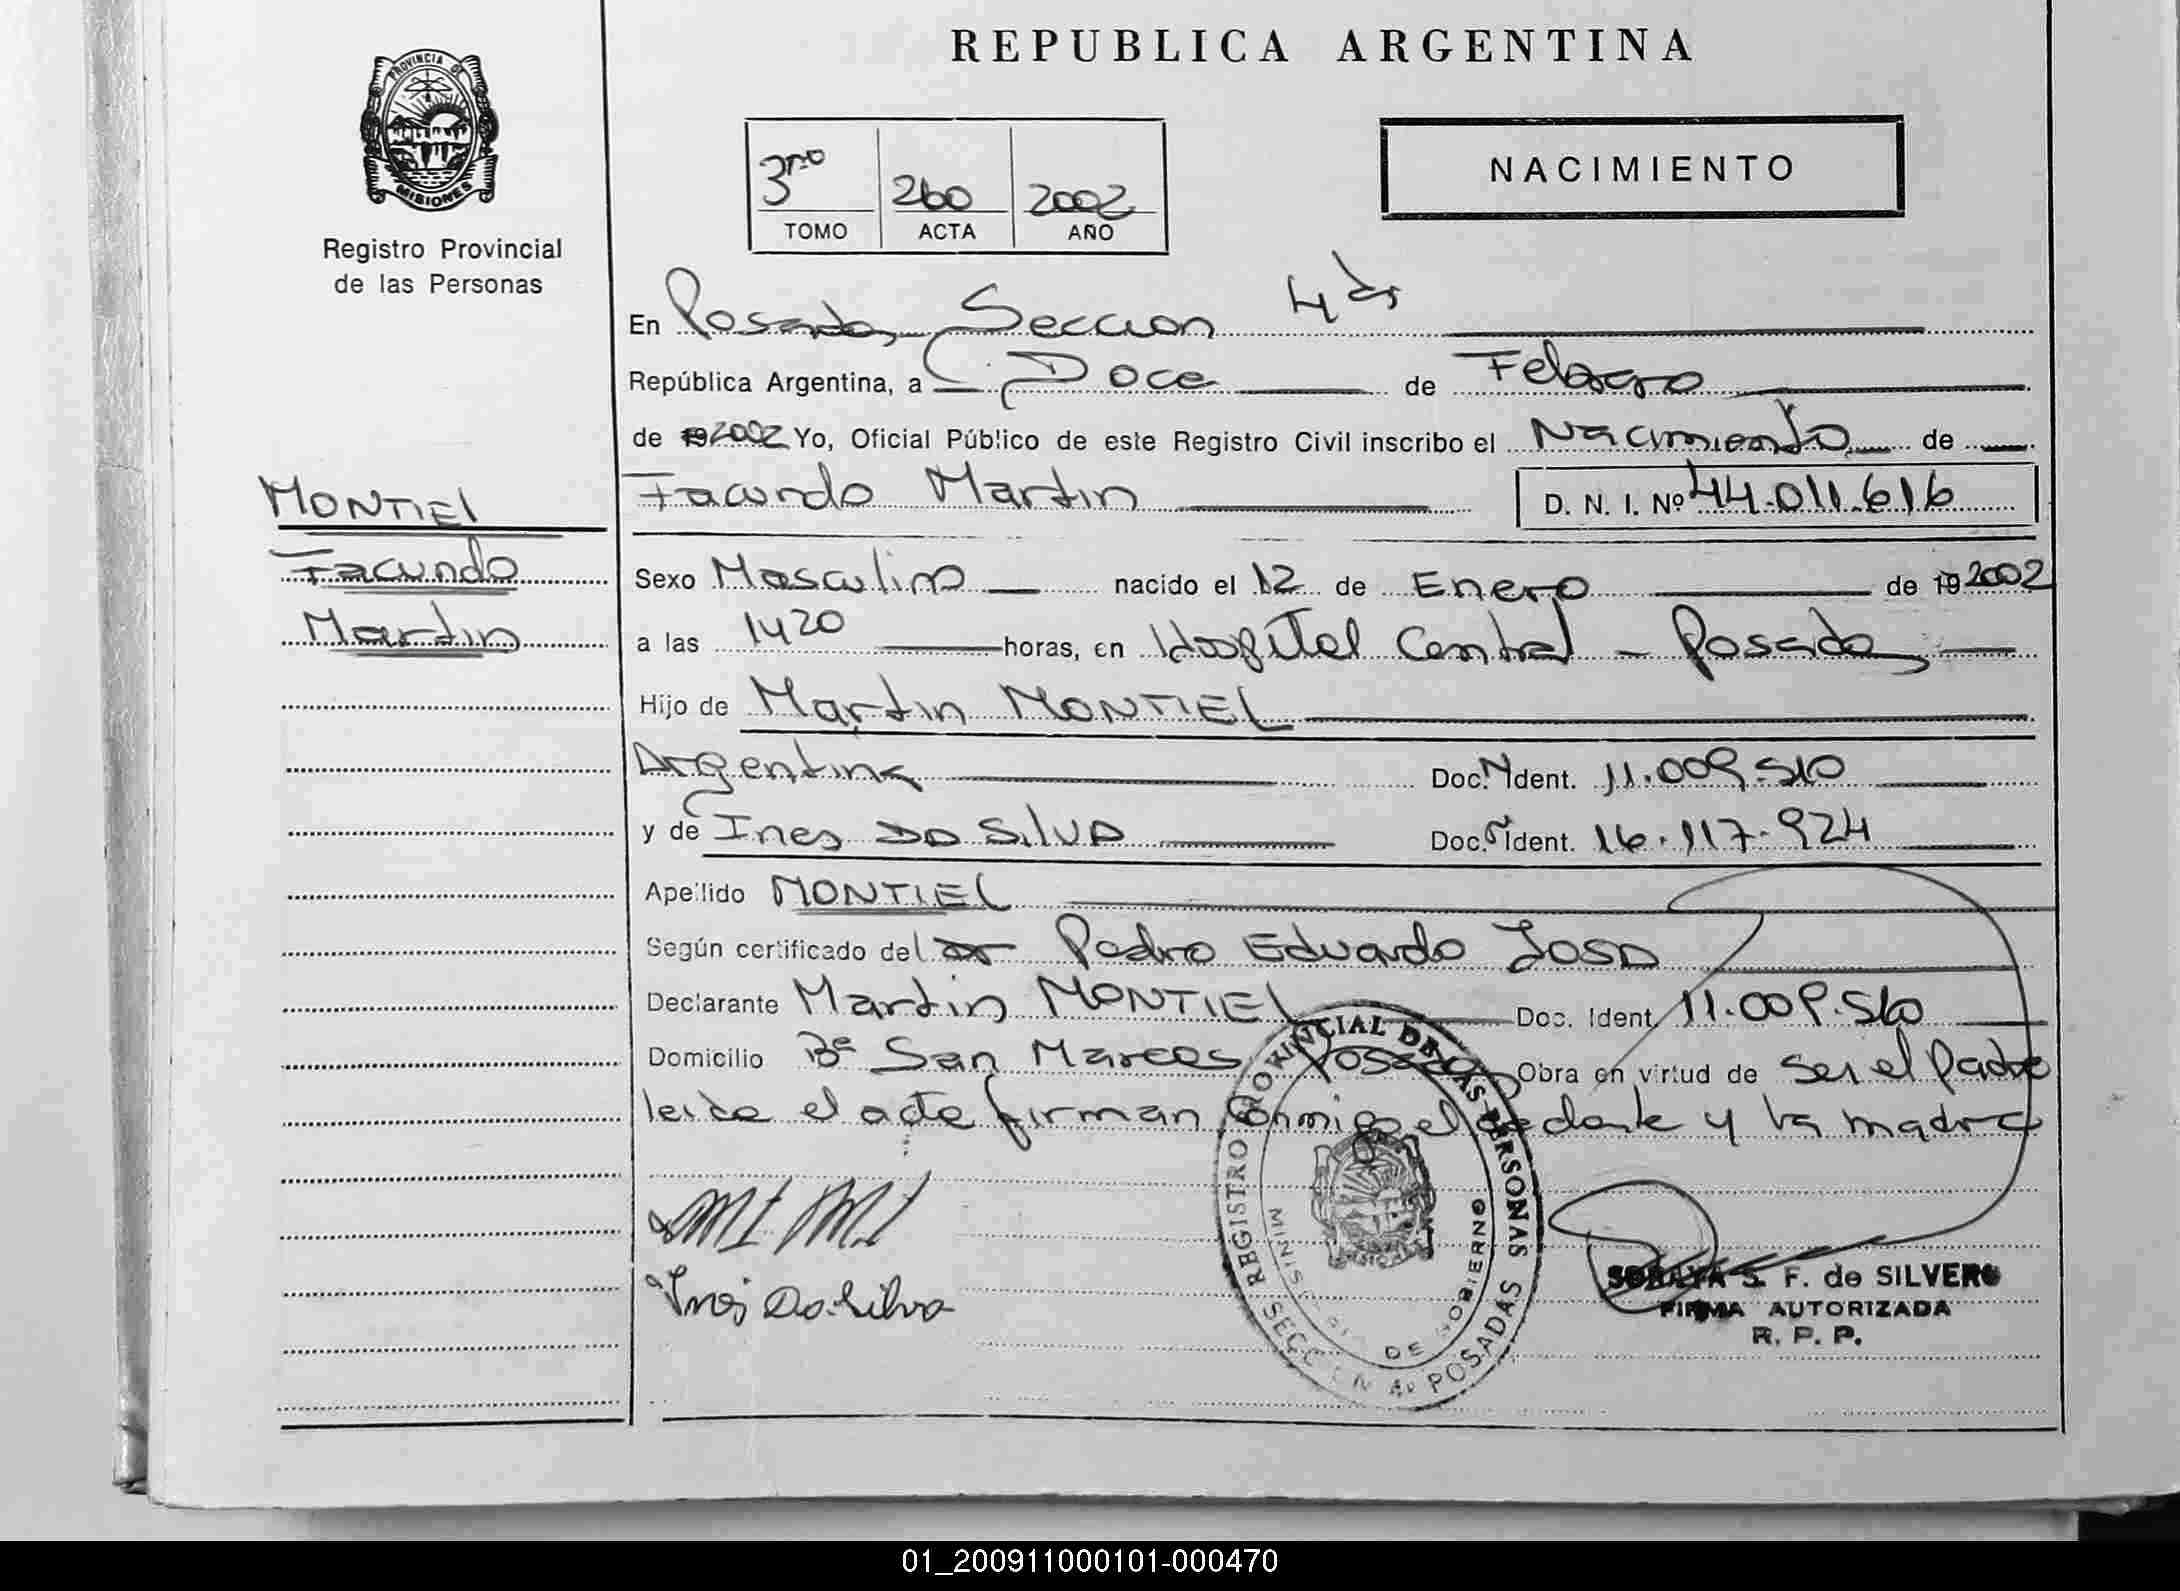 REPUBLICA ARGENTINA
PROVINCIA DE
MISIONES
Registro Provincial
de las Personas
3ro 260 2002
TOMO ACTA AÑO
NACIMIENTO
En Posadas Seccion 4ta
República Argentina, a Doce de Febrero
de 2002 Yo, Oficial Público de este Registro Civil inscribo el Nacimiento de
MONTIEL
Facundo
Martin
Facundo Martin D. N. I. Nº 44.011.616
Sexo Masculino nacido el 12 de Enero de 19 2002
a las 1420 horas, en Hospital Central - Posadas
Hijo de Martin MONTIEL
Argentina Doc. Ident. 11.009.510
y de Ines DA SILVA Doc. Ident. 16.117.924
Apellido MONTIEL
Según certificado del Dr Pedro Eduardo SOSA
Declarante Martin MONTIEL Doc. Ident. 11.009.510
Domicilio Bº San Marcos Posadas Obra en virtud de ser el Padre
leida el acta firman conmigo el y la madre
Ines Da Silva
REGISTRO PROVINCIAL DE LAS PERSONAS
MINISTERIO DE GOBIERNO
SECCION 4a POSADAS
SORAYA S. F. de SILVERO
FIRMA AUTORIZADA
R. P. P.
01_200911000101-000470